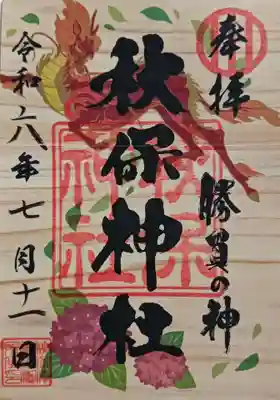 奉拝
勝負の神
秋保神社
令和六年七月十一日
秋保神社